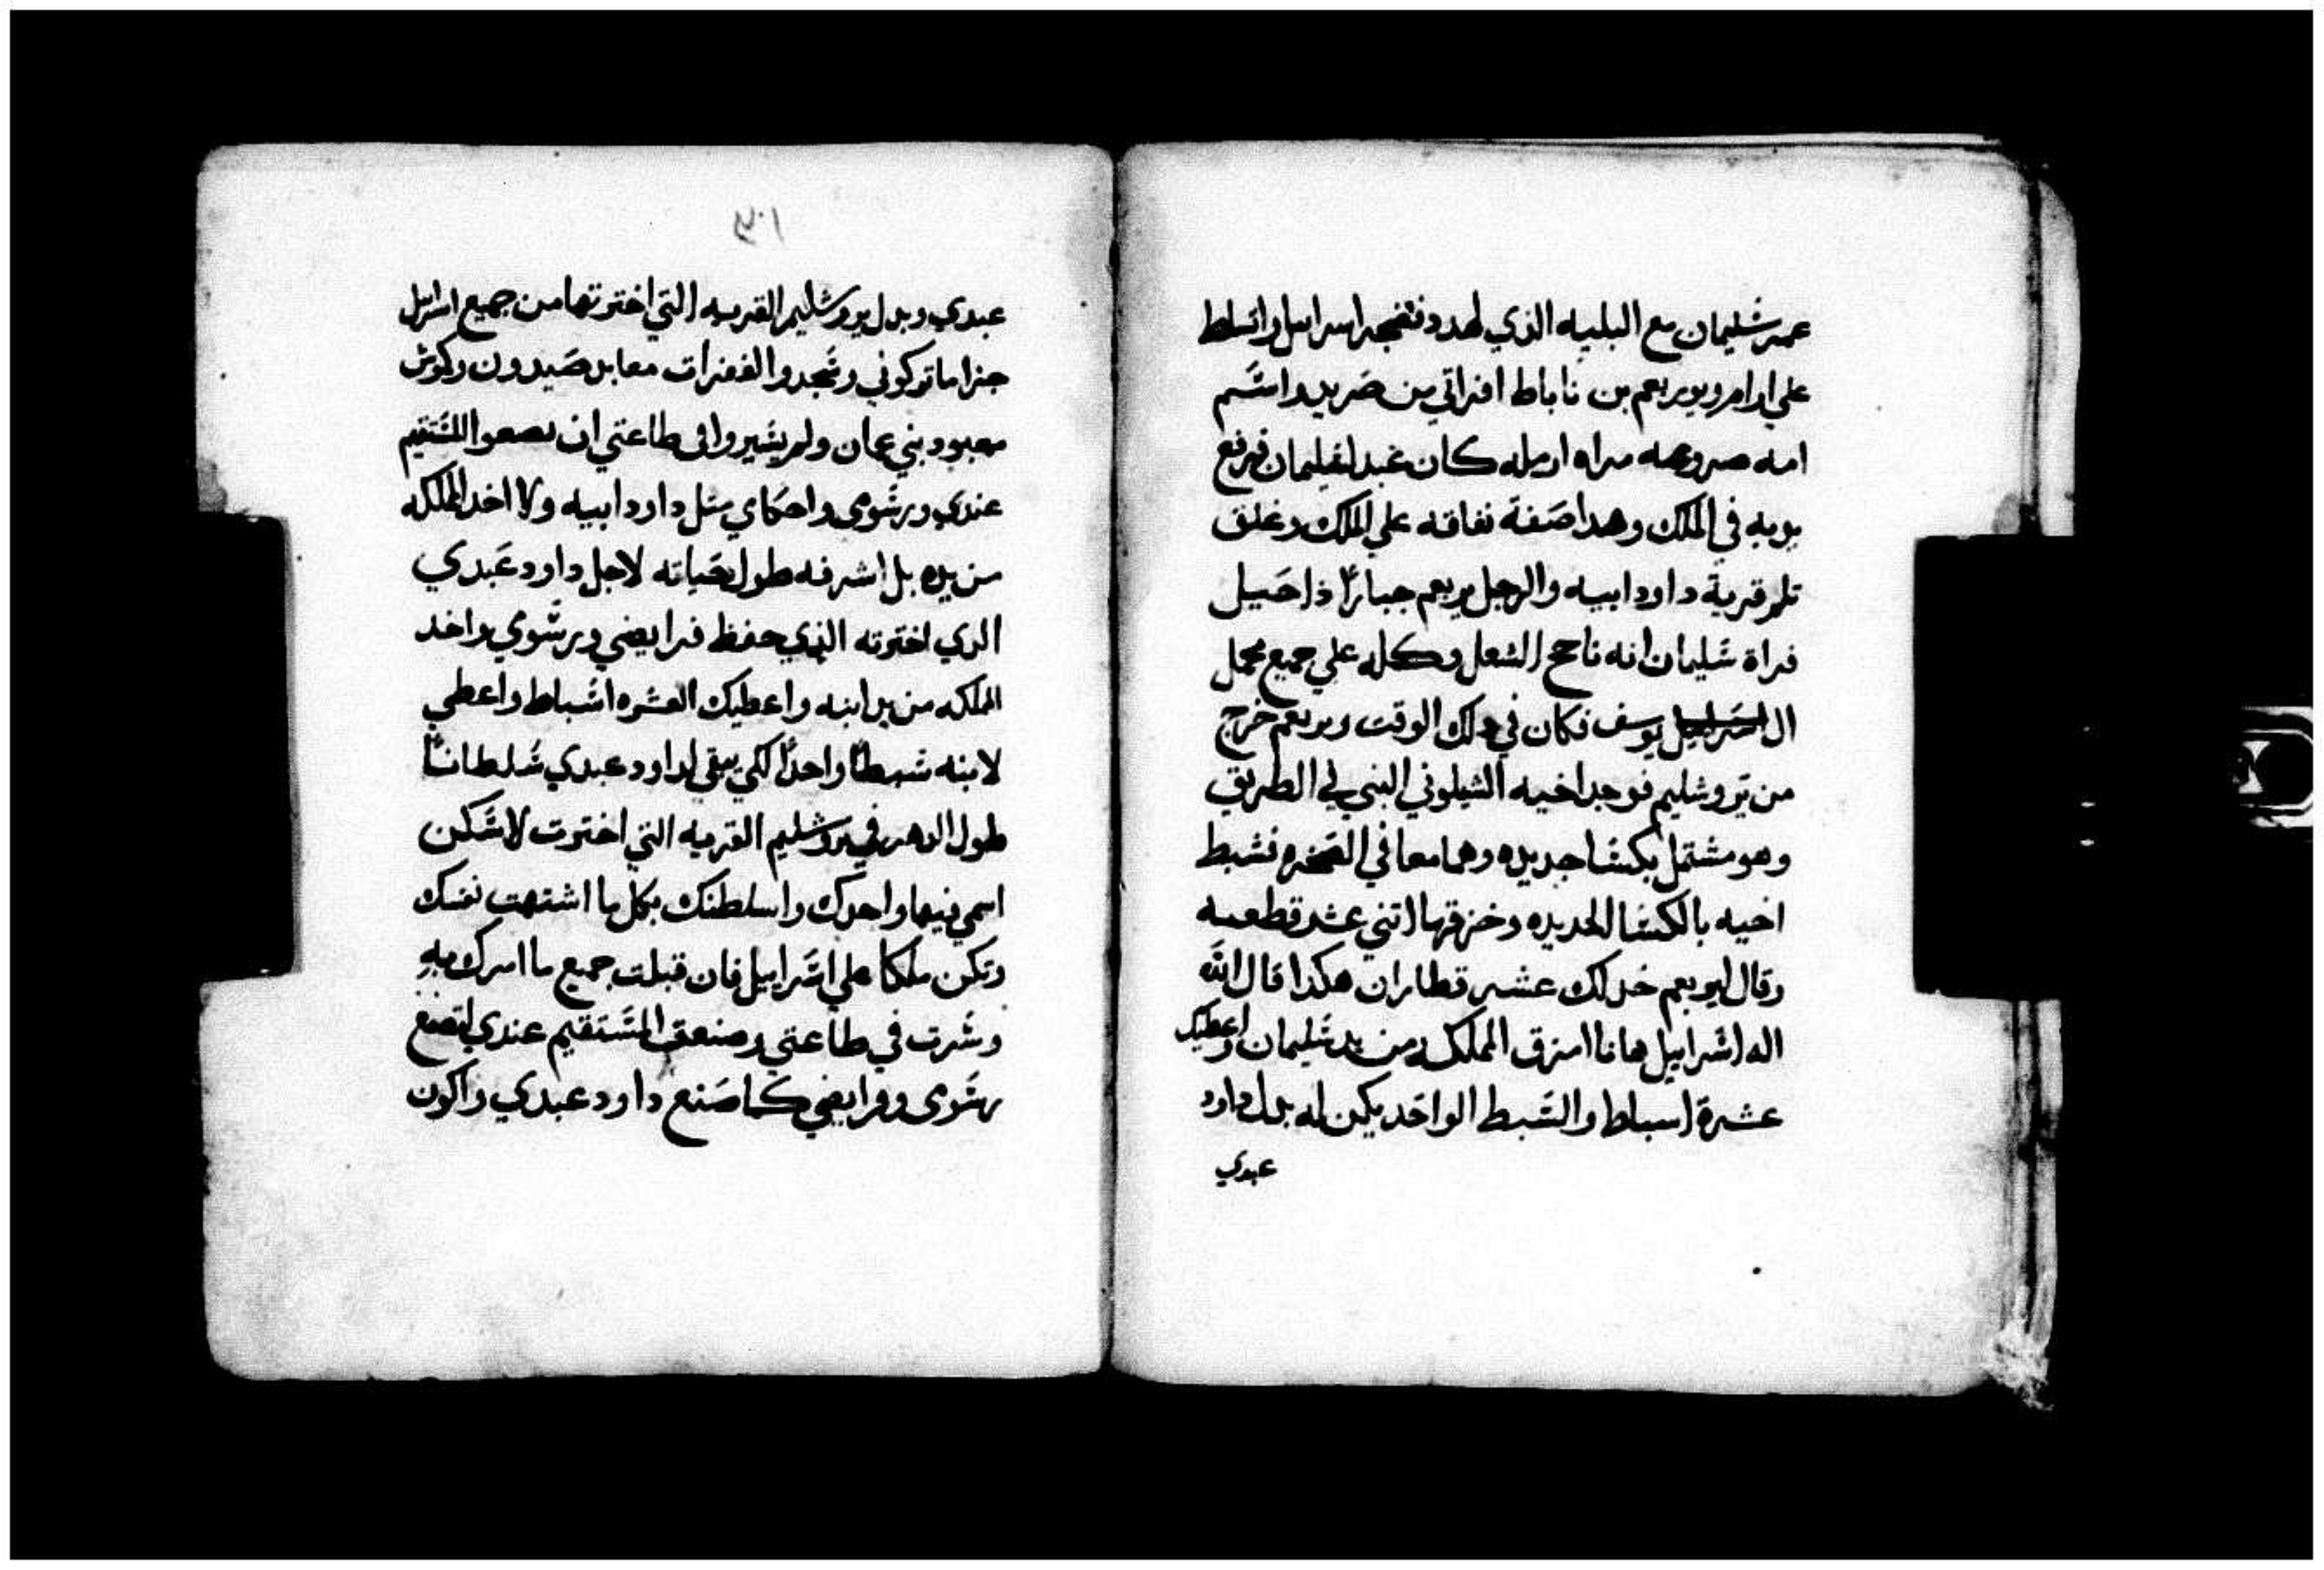 عمر شليمان مع البليه الذي لهدد فنضجر اسراىىل واتسلط
علي ارام ويوربعم بن ناباط افراتي من صريد واسَم
امه صروعه مراه ارمله كان عبد لشليمان فرفع
يديه في الملك وهدا صَفة نفاقه علي الملك وغلق
تلم قرية داود ابيه والرجل يربعم جباراً ذا حَيل
فراة شَليمان انه ناجح الشعل وكله علي جميع محمل
ال اسَراىيل يوسف فكان في دلك الوقت ويربعم خرج
من يَروشليم فوجد اخيه الشيلوني النبي في الطريق
وهو مشتمل بكسَا جديده وهما معا في الصَحره فشبط
اخيه بالكسَا الجديده وخزقها اتني عشر قطعىه
وقال ليوبعم خد لك عشر قطاران هكدا قال اللّه
اله اسَرابيل هانا امزق المملكه من يد شَليمان واعطيك
عشرة اسباط والسَبط الواحَد يكن له بدل داود
عبدي
٣٠١
عبدي وبدل يروشليم القريه التي اخترتها من جميع اسراىل
جزا ما تركوني وسَجدو الفغرات معابد صَيدون وكموش
معبود بني عمان ولم يسَيروا في طاعتي ان ىصعوا المسَتقيم
عندي ورسَومى واحكاي مثل داود ابيه ولا اخد المملكه
من يده بل اشرفه طول حَياته لاجل داود عَبدي
الدي اخترته الذي حفظ فرايضي ورسَومي واخد
المملكه من يد ابنه واعطيك العشره اسَباط واعطي
لابنه شبطاً واحداً لكي يبقي لداود عبدي سَلطاناً
طول الدهر في يروشليم القريه التي اخترت لاسَكن
اسمي فيها واحدك واسلطنك بكل ما اشتهت نفسك
وتكن ملكا علي اسَرابيل فان قبلت جميع ما امرك به
وسَرت في طاعتي وصنعت المسَتقيم عندي لتصنع
رسَومى وفرايضي كما صَنع داود عبدي واكون